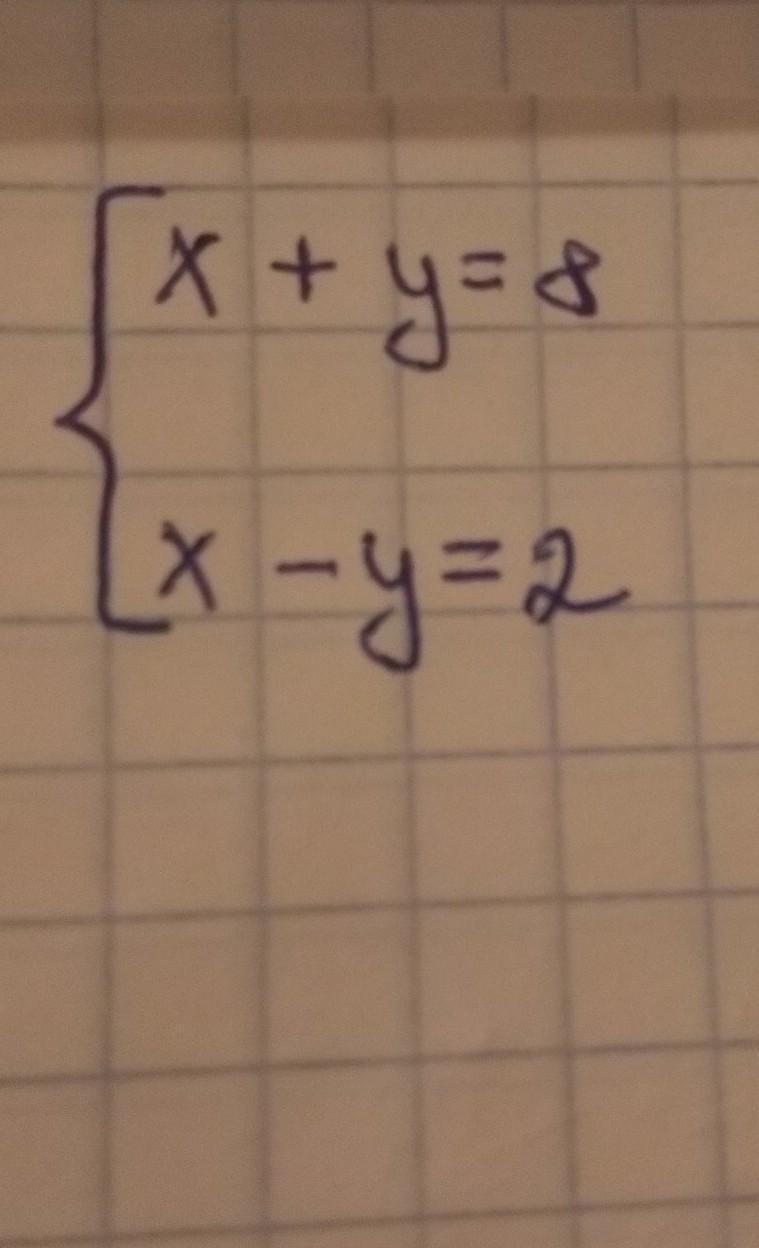 x + y = 8
x - y = 2